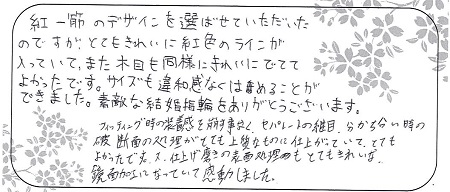 紅一筋のデザインを選ばせていただいた
のですが、とてもきれいに紅色のラインが
入っていて、また木目も同様にきれいにでてて
よかったです。サイズも違和感なくはめることが
できました。素敵な結婚指輪をありがとうございます。
フィッティング時の装着感を崩す事なく、セパレートの継目、分かち合い時の
破断面の処理がとても上質なものに仕上がっていて、とても
よかったです。又、仕上げ磨きの表面処理もとてもきれいな
鏡面加工になっていて感動しました。